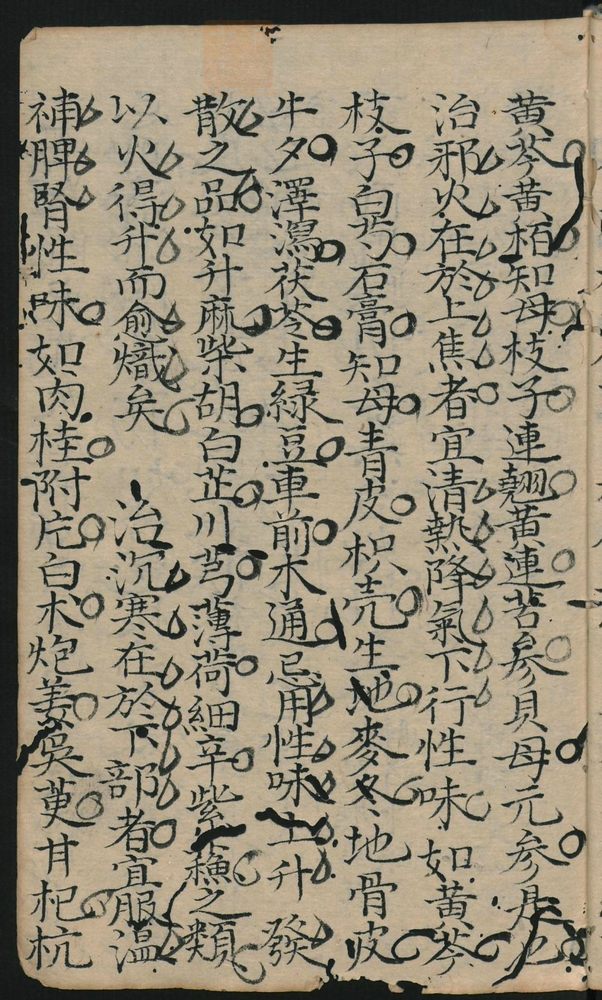 黄芩黄栢知母枝子連翹黄連苦参貝母元参是也
治邪火在於上焦者宜清熱降氣下行性味如黄芩
枝子白芍石膏知母青皮枳壳生地麥冬地骨皮
牛夕澤瀉茯苓生緑豆車前木通忌用性味上升發
散之品如升麻柴胡白芷川芎薄荷細辛紫穗之類
以火得升而愈熾矣 治沉寒在於下部者宜服温
補脾腎性味如肉桂附片白术炮姜吳萸甘杞杭